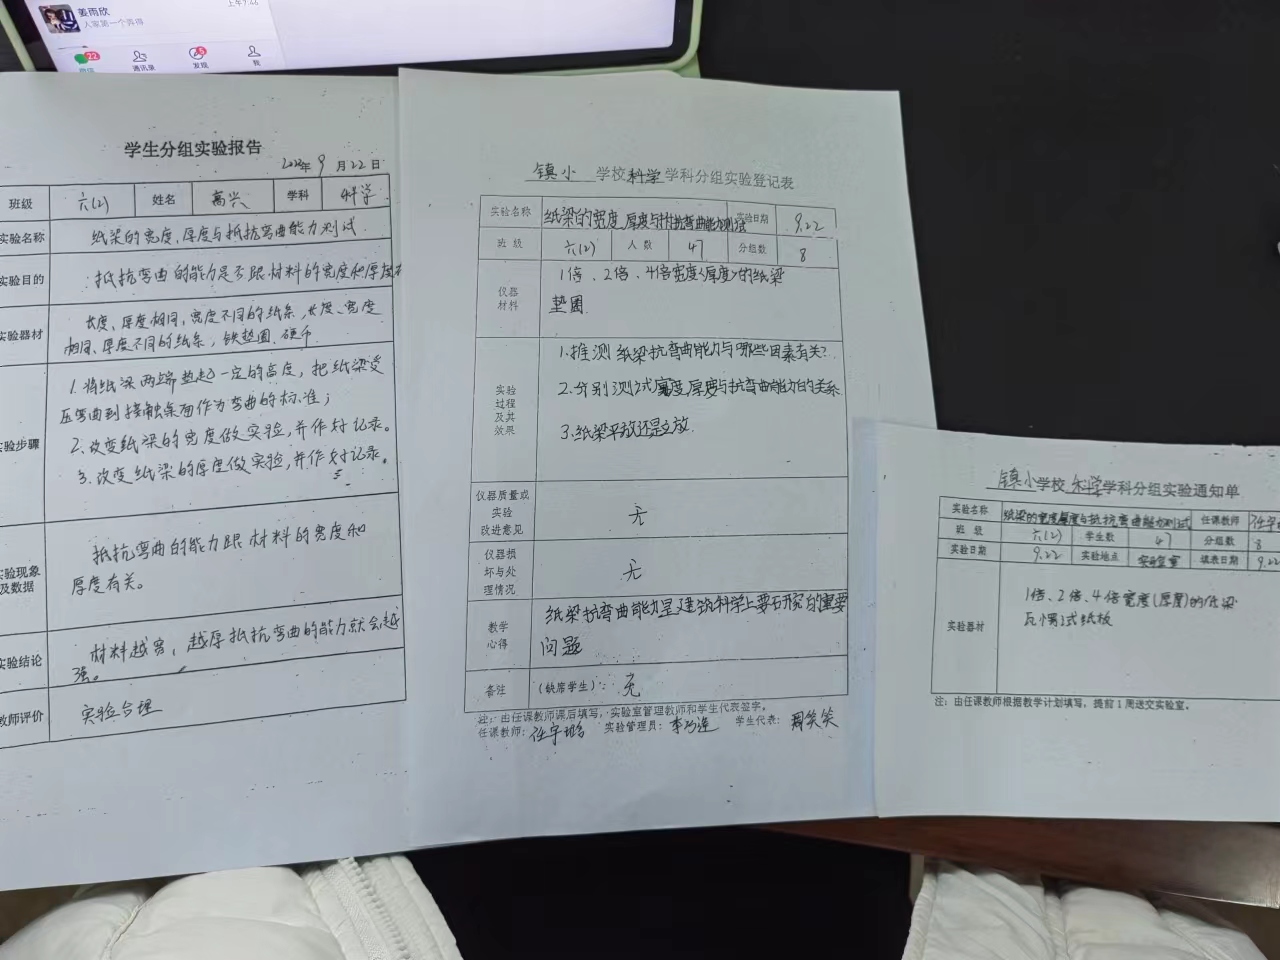 姜雨欣
22
通讯录
5
发现
我
学生分组实验报告
9月22日
班级 六(2) 姓名 高兴 学科 科学
实验名称 纸梁的宽度、厚度与抵抗弯曲能力测试
实验目的 抵抗弯曲的能力是否跟材料的宽度和厚度有
实验器材 长度、厚度相同,宽度不同的纸条,长度、宽度
相同、厚度不同的纸条,铁垫圈、硬币
实验步骤 1.将纸梁两端垫起一定的高度,把纸梁受
压弯曲到接触桌面作为弯曲的标准;
2.改变纸梁的宽度做实验,并作好记录。
3.改变纸梁的厚度做实验,并作好记录。
实验现象
及数据
抵抗弯曲的能力跟材料的宽度和
厚度有关。
实验结论 材料越宽、越厚抵抗弯曲的能力就会越
强。
教师评价 实验合理
镇小 学校科学学科分组实验登记表
实验名称 纸梁的宽度、厚度与抵抗弯曲能力测试 实验日期 9.22
班级 六(2) 人数 47 分组数 8
仪器
材料
1倍、2倍、4倍宽度(厚度)的纸梁
垫圈
实验
过程
及其
效果
1.推测纸梁抗弯曲能力与哪些因素有关?
2.分别测试宽度、厚度与抗弯曲能力的关系
3.纸梁平放还是立放.
仪器质量或
实验
改进意见
无
仪器损
坏与处
理情况
无
教学
心得
纸梁抗弯曲能力是建筑科学上要研究的重要
问题
备注 (缺席学生): 无
注:由任课教师课后填写,实验室管理教师和学生代表签字。
任课教师: 实验管理员: 学生代表: 周笑笑
镇小学校科学学科分组实验通知单
实验名称 纸梁的宽度厚度与抵抗弯曲能力测试 任课教师
班级 六(2) 学生数 47 分组数 8
实验日期 9.22 实验地点 实验室 填表日期 9.22
实验器材
1倍、2倍、4倍宽度(厚度)的纸梁
瓦楞式纸板
注:由任课教师根据教学计划填写,提前1周送交实验室。